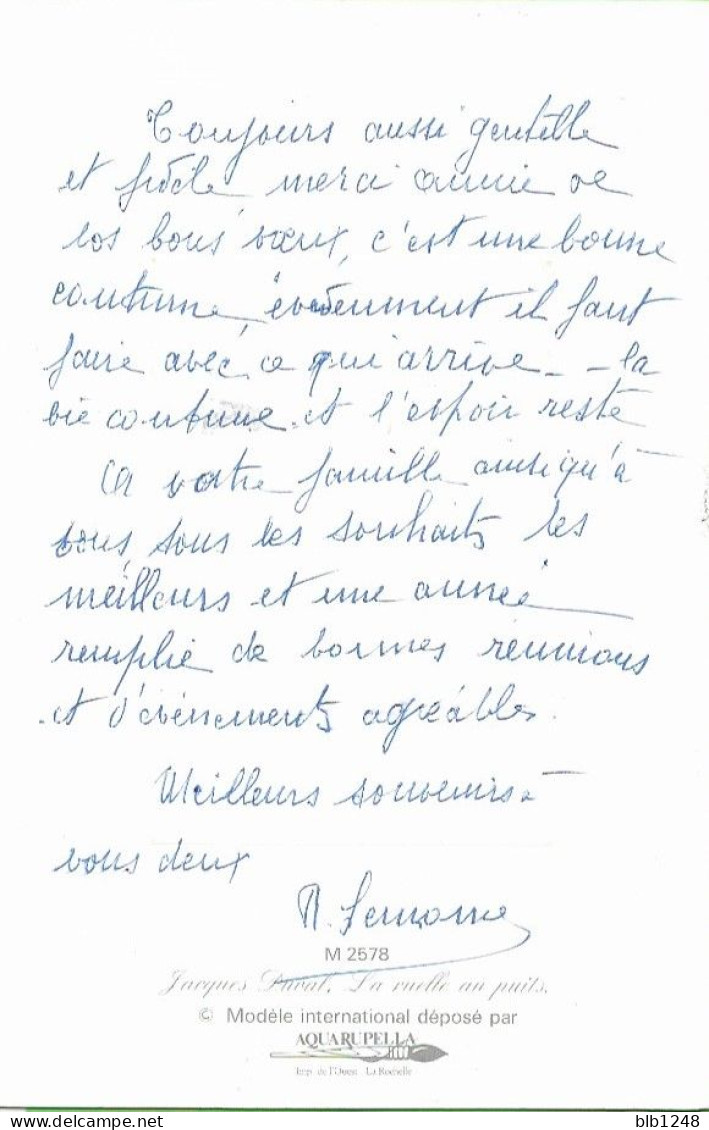 Toujours aussi gentille
et fidèle merci annie de
tos bons vœux, c'est une bonne
coutume, évidemment il faut
faire avec ce qui arrive - - la
vie continue et l'espoir reste
A votre famille ainsi qu'à
vous, tous les souhaits les
meilleurs et une année
remplie de bonnes réunions
et d'évènements agréables.
Meilleurs souvenirs à
vous deux
M 2578
Jacques Duval, La ruelle au puits.
© Modèle international déposé par
AQUARUPELLA
Imp. de l'Ouest La Rochelle
blb1248